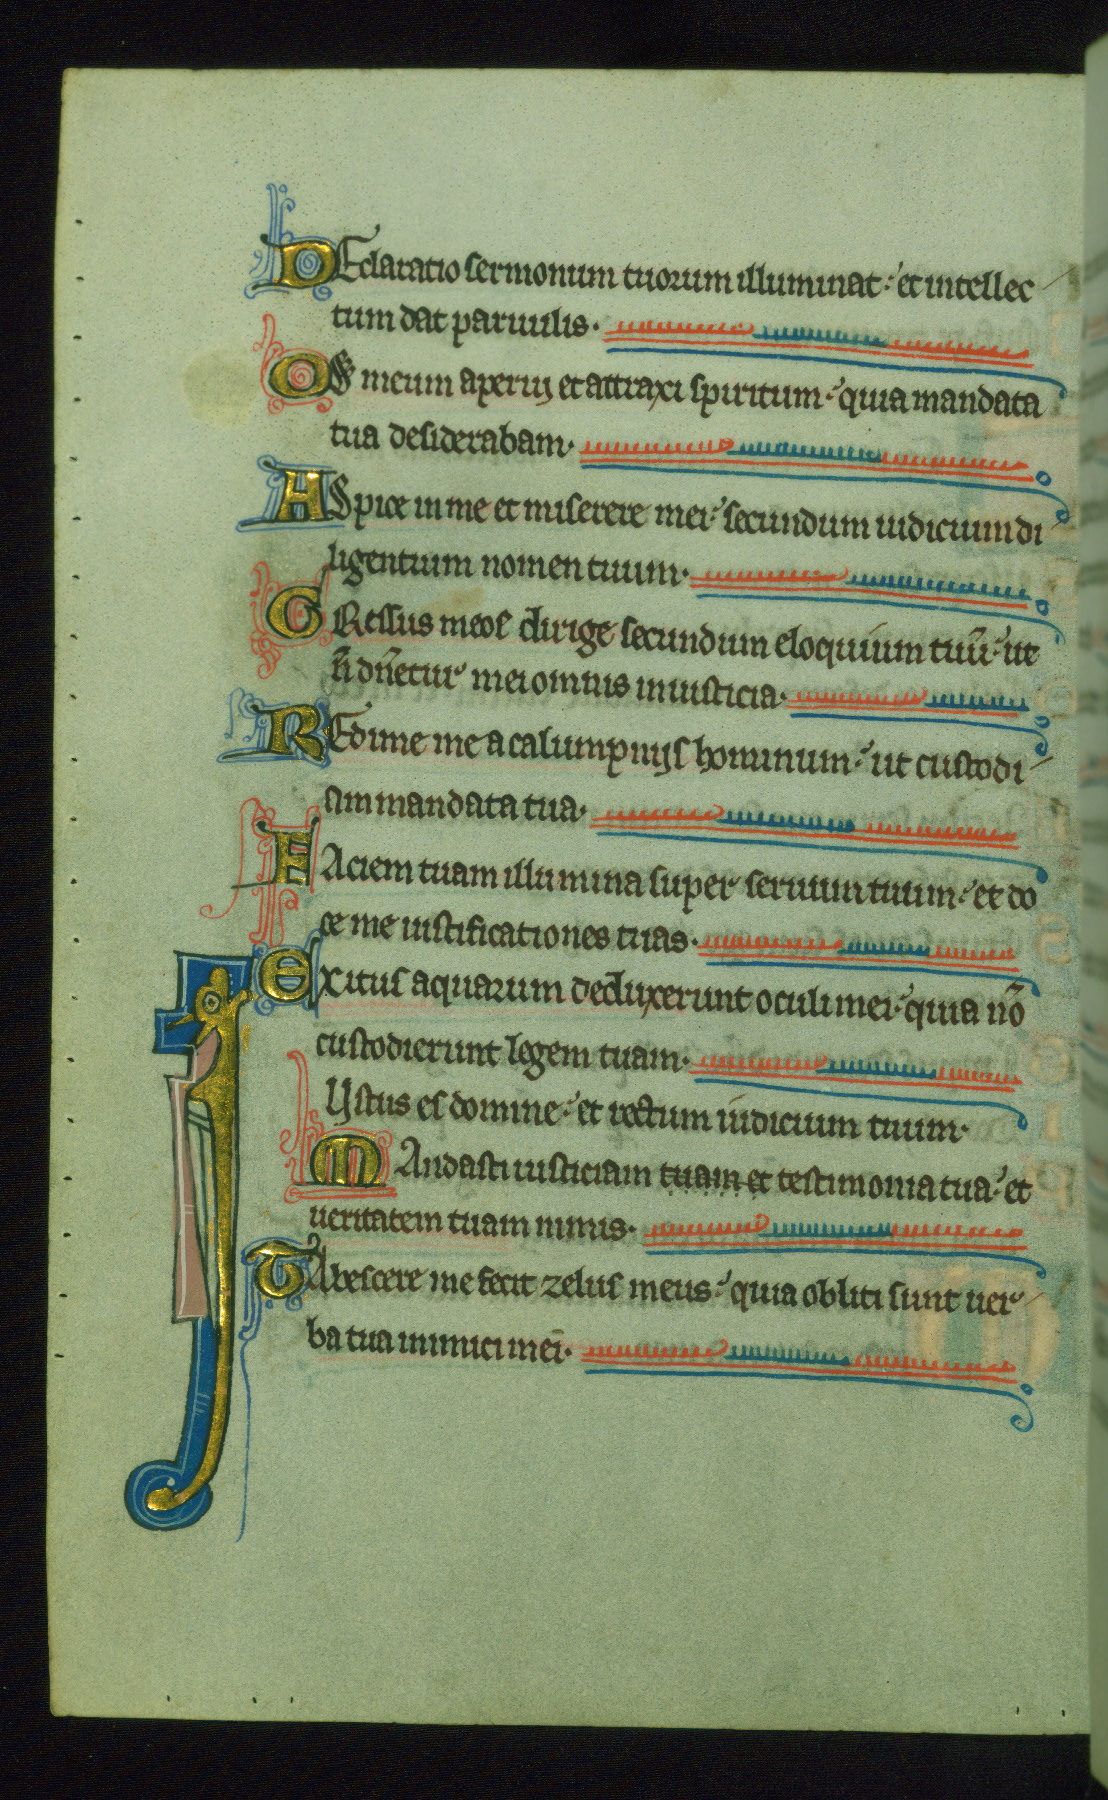 DEclaratio sermonum tuorum illuminat: et intellec
tum dat paruulis.
OS meum aperui et attraxi spiritum: quia mandata
tua desiderabam.
ASpice in me et miserere mei: secundum iudicium di
ligentium nomen tuum.
GRessus meos dirige secundum eloquium tuū: ut
n̄ dn̄etur mei omnis iniusticia.
REdime me a calumpnijs hominum: ut custodi
am mandata tua.
FAciem tuam illumina super seruum tuum: et do
ce me iustificationes tuas.
Exitus aquarum deduxerunt oculi mei: quia nō
custodierunt legem tuam.
IUstus es domine: et rectum iudicium tuum.
MAndasti iusticiam tuam et testimonia tua: et
ueritatem tuam nimis.
TAbescere me fecit zelus meus: quia obliti sunt uer
ba tua inimici mei.